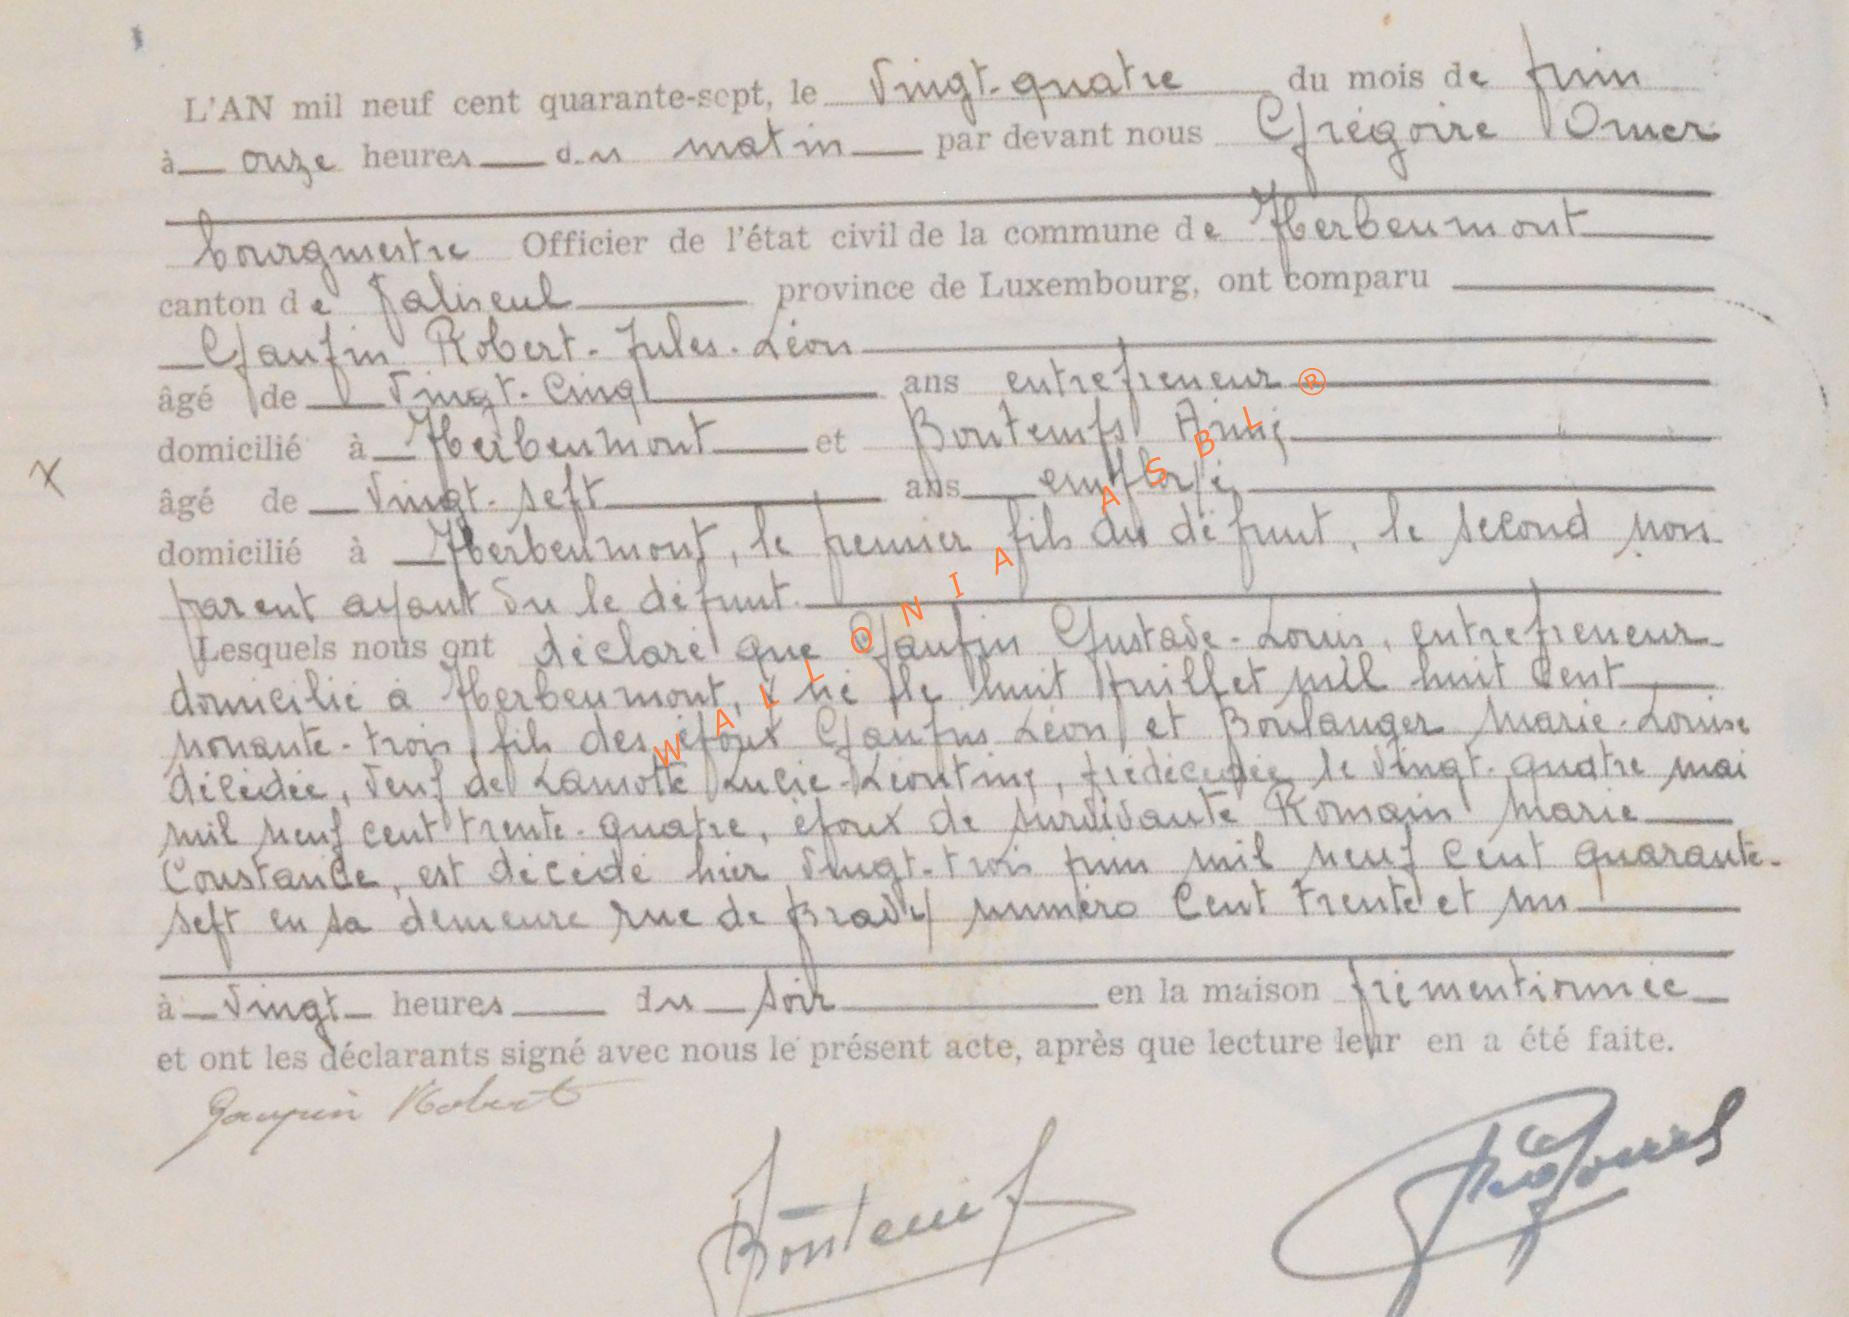 L'AN mil neuf cent quarante-sept, le vingt-quatre du mois de juin
à onze heures du matin par devant nous Grégoire Omer
bourgmestre Officier de l'état civil de la commune de Herbeumont
canton de Paliseul province de Luxembourg, ont comparu
Gaupin Robert-Jules-Léon
âgé de vingt-cinq ans entrepreneur
domicilié à Herbeumont et Bontemps Aimé
âgé de vingt-sept ans employé
domicilié à Herbeumont, le premier fils du défunt, le second non
parent ayant vu le défunt.
Lesquels nous ont déclaré que Gaupin Gustave-Louis, entrepreneur
domicilié à Herbeumont, y né le huit juillet mil huit cent
nonante-trois, fils des époux Gaupin Léon et Boulanger Marie-Louise
décédée, veuf de Lamotte Lucie-Léontine, prédécédée le vingt-quatre mai
mil neuf cent trente-quatre, époux de survivante Romain Marie
Constance, est décédé hier vingt-trois juin mil neuf cent quarante-
sept en sa demeure rue de Bravy numéro cent trente et un
à vingt heures du soir en la maison prémentionnée
et ont les déclarants signé avec nous le présent acte, après que lecture leur en a été faite.
Gaupin Robert
Bontemps
Grégoire
WALLONIA ASBL ®